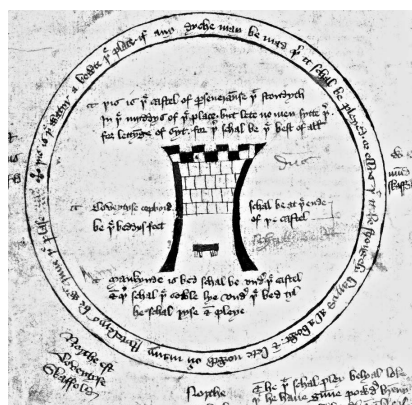 þis is þe watyr a bowte þe place if any dyche may be mad þer it schal be pleyed or ellys þat it be strongely barryd al a bowt & lete nowth ouyr many stytelerys be wt Inne þe plase
þis is þe castel of perseueraunse þat stondyth
In þe myddys of þe place but lete no men sytte þer
for lettynge of syt for þer schal be þe best of all
Coueytyse copbord schal be at þe ende
be þe beddys feet of þe castel
Mankynde is bed schal be vndyr þe castel
& þer schal þe sowle lye vndyr þe bed tyl
he schal ryse & pleye
Northe est
Coueytyse
skaffold
Northe
& he þat schal pley belyal loke
þat he haue gunne powdyr brennyng